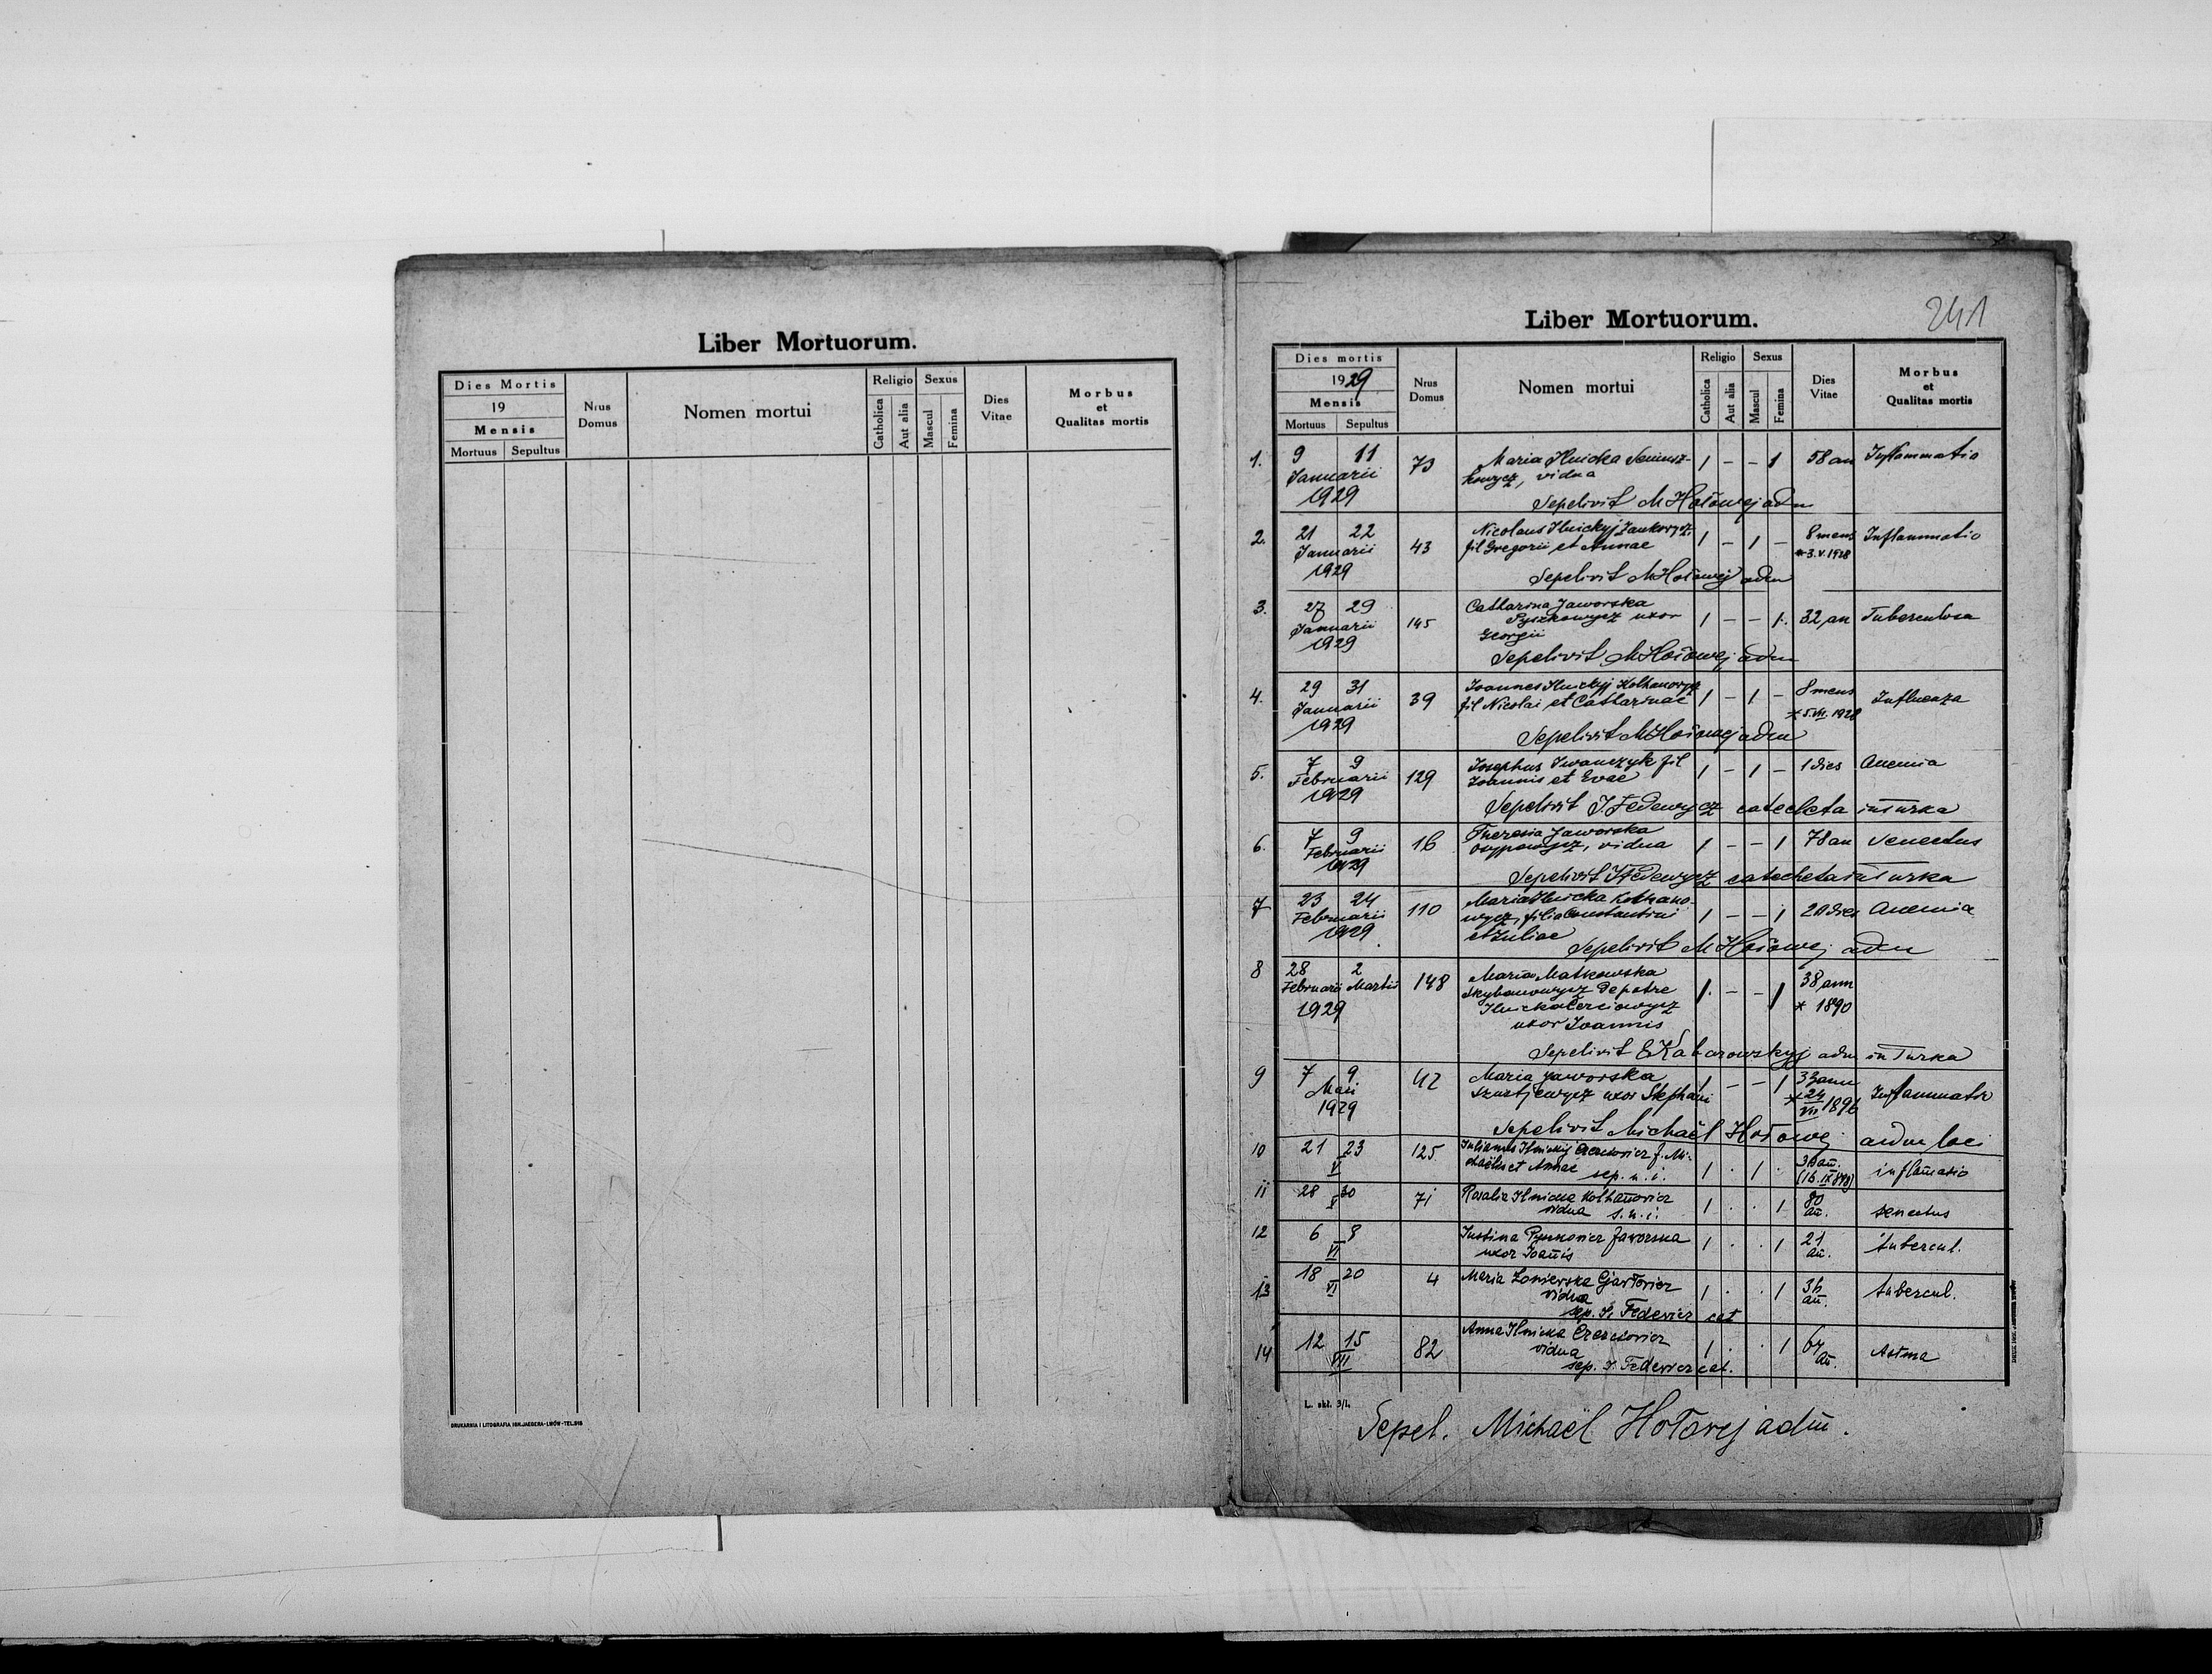 Liber Mortuorum.
Dies Mortis
19
Mensis
Mortuus Sepultus
Nrus Domus
Nomen mortui
Religio
Catholica
Aut alia
Sexus
Mascul
Femina
Dies Vitae
Morbus
et
Qualitas mortis
DRUKARNIA I LITOGRAFIA IGN.JAEGERA-LWÓW-TEL.
241
Liber Mortuorum.
Dies mortis
1929
Mensis
Mortuus Sepultus
Nrus Domus
Nomen mortui
Religio
Catholica
Aut alia
Sexus
Mascul
Femina
Dies Vitae
Morbus
et
Qualitas mortis
1. 9 11 Maria Ilnicka 1 – – 1 58 an Inflammatio
Januarii , vidua
1929 Sepelivit M Hołowej adm
2. 21 22 43 Nicolaus Ilnickyj Jankowycz 1 – 1 – 8 mens Inflammatio
Januarii fil Gregorii et Annae * 3.V.1928
1929 Sepelivit M Hołowej adm
3. 27 29 145 Catharina Jaworska 1 – – 1. 32 an Tuberculosa
Januarii Pyszkowycz uxor
1929 Georgii
Sepelivit M Hołowej adm
4. 29 31 39 Joannes Ilnickyj Kołhanowycz 1 – 1 – 8 mens Influenza
Januarii fil Nicolai et Catharinae * 5. 1928
1929 Sepelivit M Hołowej adm
5. 7 9 129 Josephus Iwanczyk fil 1 – 1 – 1 dies Anemia
Februarii Joannis et Evae
1929 Sepelivit J Fedewycz catecheta in Turka
6. 7 9 16 Theresia Jaworska 1 – – 1 78 an Senectus
Februarii Osypowycz, vidua
1929 Sepelivit J Fedewycz catecheta in Turka
7 23 24 110 Maria Ilnicka Kołhano- 1 – – 1 dies Anemia
Februarii wycz, filia Constantini
1929 et Juliae
Sepelivit M Hołowej adm
8 28 2 148 Maria Matkowska 1. – – 1 38 ann
Februarii Martii Skybanowycz de patre * 1890
1929 Ilnicka
uxor Joannis
Sepelivit E Kabarowskyj adm in Turka
9 7 9 42 Maria Jaworska 1 – – 1 33 ann Inflammatio
Maii uxor Stephani * 24 VII 1896
1929
Sepelivit Michaël Hołowej adm loci
10 21 23 125 Julianus Ilnickij f. Mi- 1 . 1 . inflam̄atio
V chaëlis et Annae sep. u. i.
11 28 30 71 Rosalia Ilnicka Kołhanowicz 1 . . 1 80 senectus
V vidua s. u. i. an̄.
12 6 8 Justina Pyszkowicz Jaworska 1 . . 1 21 tubercul.
VI uxor Joan̄is an̄.
13 18 20 4 Maria 1 . . 1 an̄. tubercul.
VI vidua
sep. J. Federicz cat
14 12 15 82 Anna Ilnicka 1 . . 1 64 Astma
VII vidua an̄.
sep. J. Federicz cat.
L. skł. 3/I.
Sepel. Michaël Hołowej adm̄.